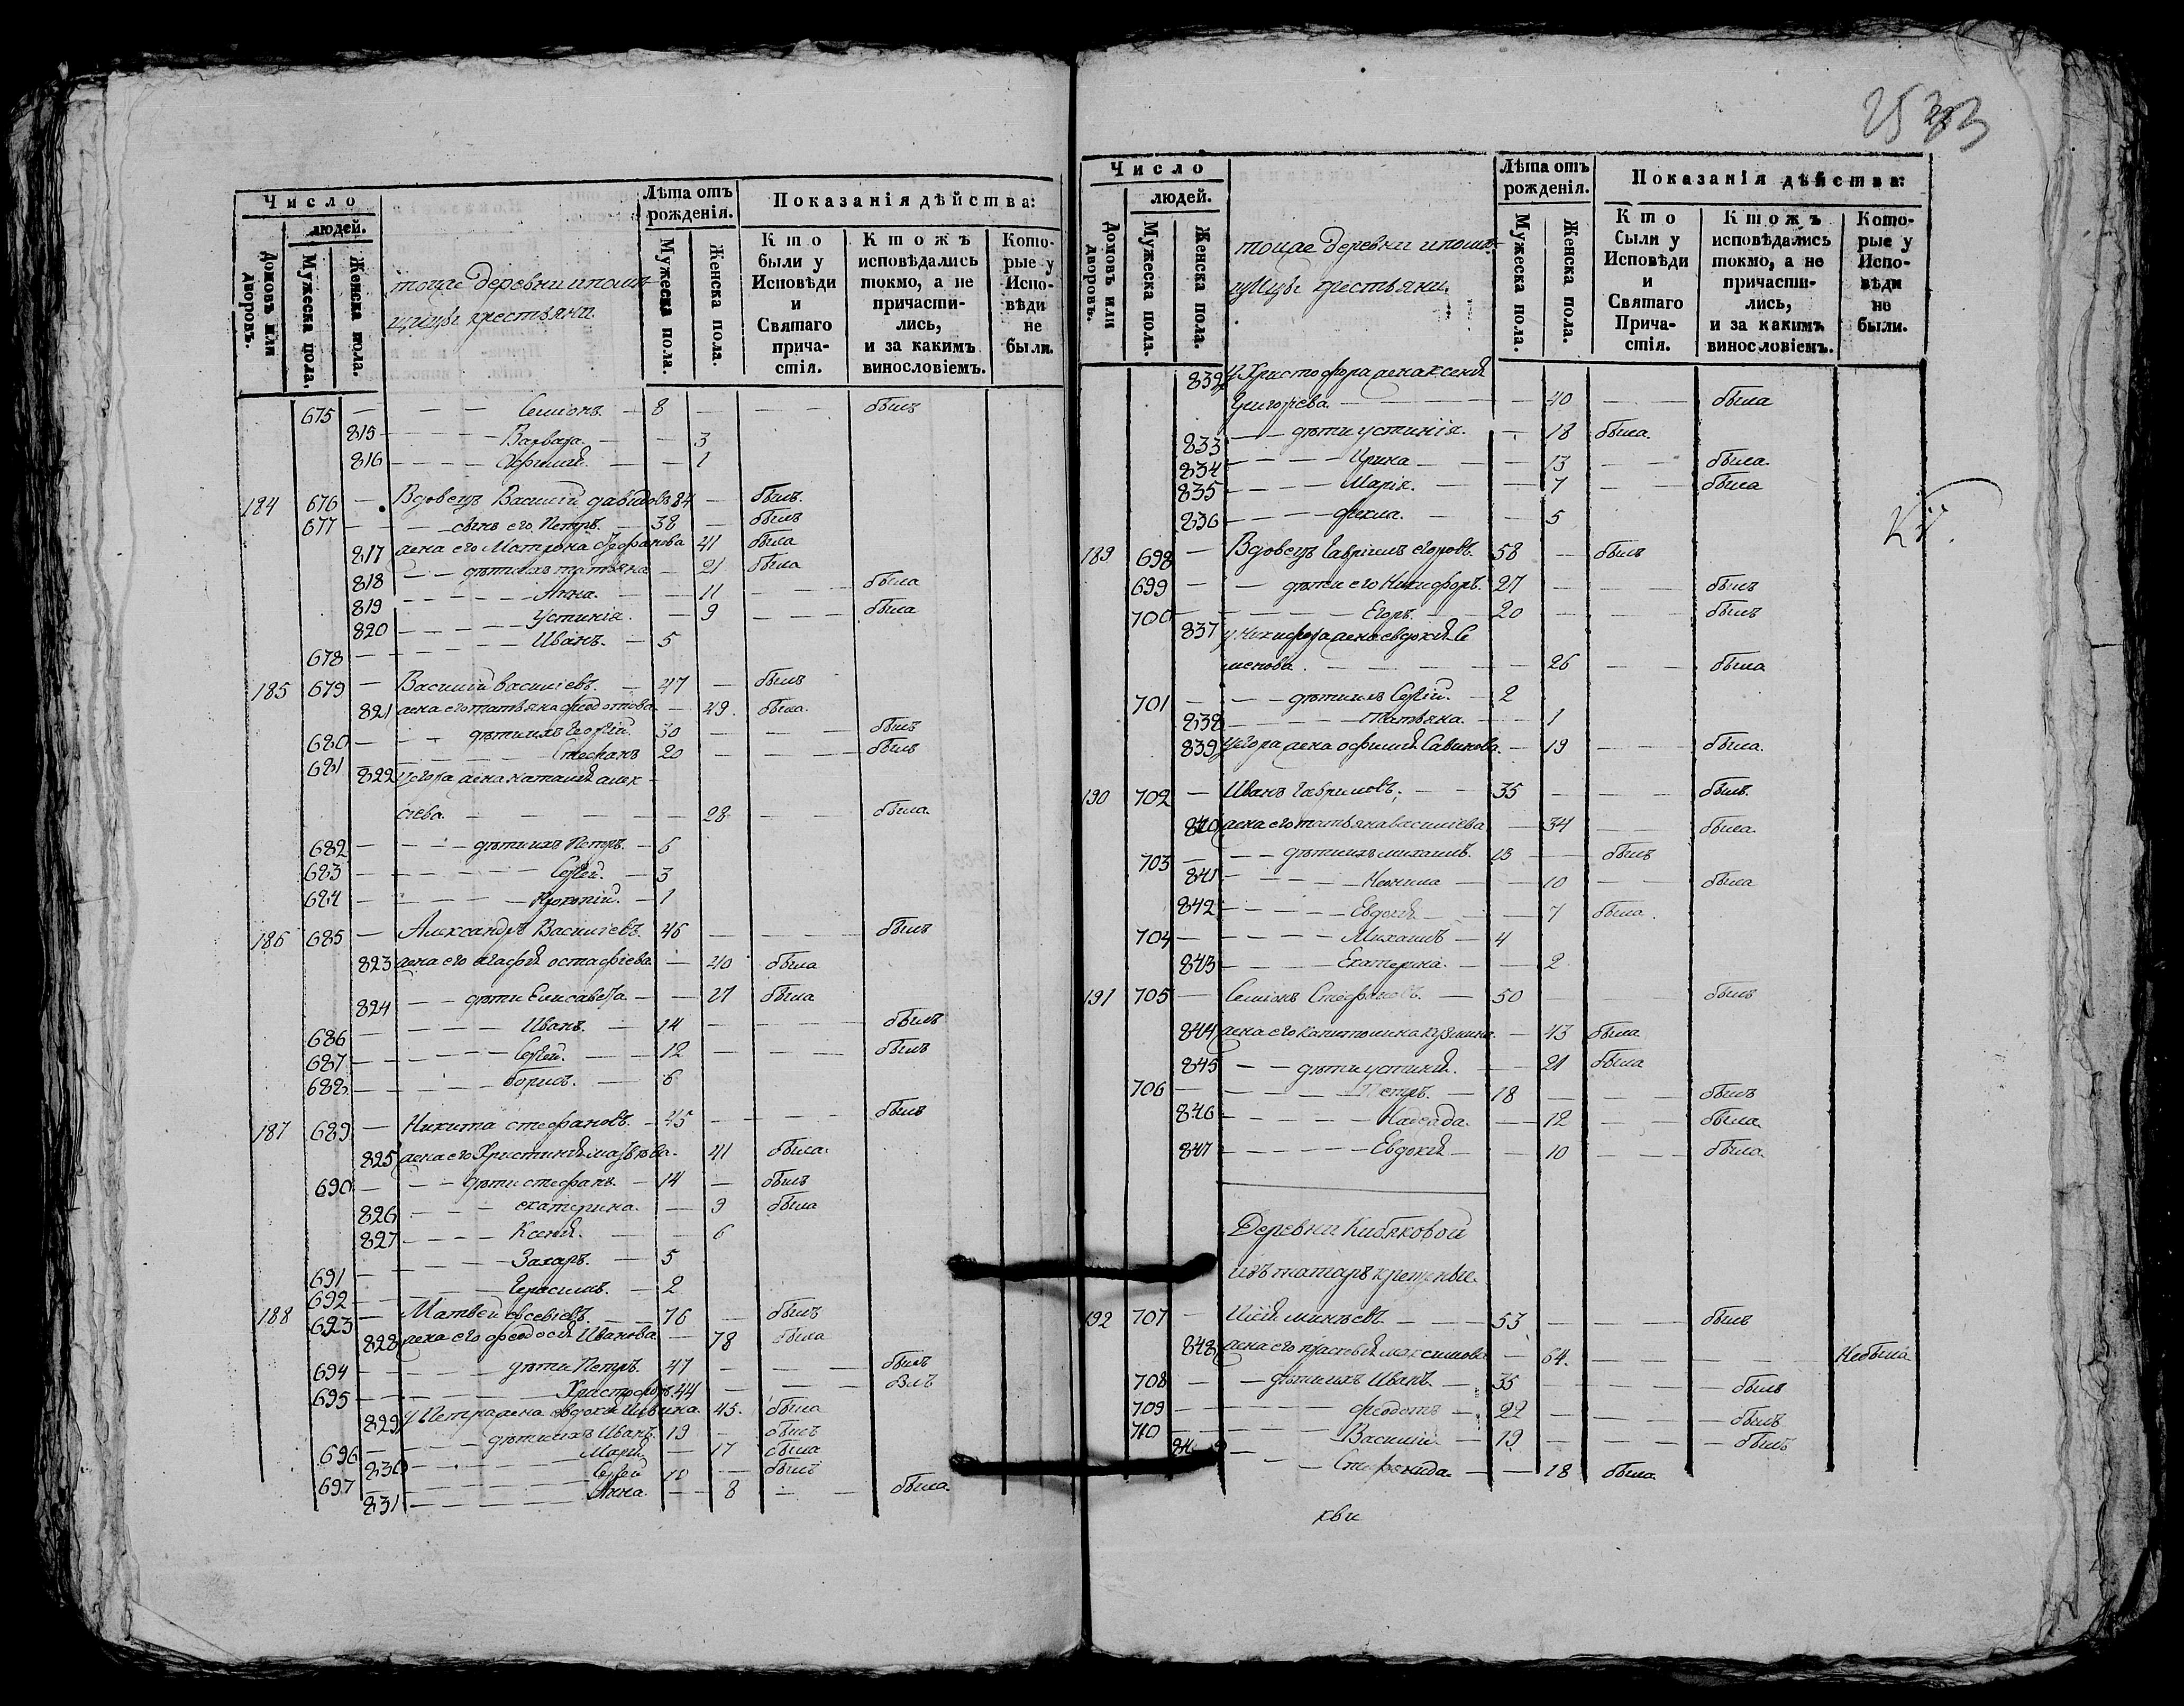 Число
людей.
Домовъ или дворовъ.
Мужеска пола.
Женска пола.
тояже деревни и помѣ-
щицы крестьяни.
Лѣта отъ рожденія.
Мужеска пола.
Женска пола.
Показанія дѣйства:
Кто были у Исповѣди и Святаго причастія.
Ктожъ исповѣдались токмо, а не причастились, и за какимъ винословіемъ.
Которые у Исповѣди не были.
675 — Семіонъ. — 8 — былъ
815 — Варвара. — 3
816 — Афимія. — 1
184 676 — Вдовецъ Василій давыдовъ 84 — былъ.
677 — сынъ его Петръ. — 38 — былъ
817 жена его Матрона стефанова 41 была
818 — дѣти ихъ татьяна — 21 была
819 — Анна. — 11 — была
820 — Устинія. — 9 — была
678 — Иванъ. — 5
185 679 — Василій василіевъ. — 47 — былъ
821 жена его татьяна федотова — 49. была.
680 — дѣти ихъ Георгій. 30 — былъ
681 — Стефанъ 20 — былъ
822 у егора жена наталія алек-
сіева. — 28 — была.
682 — дѣти ихъ Петръ. — 6
683 — Сергей. — 3
684 — Прокопій. — 1
186 685 — Александръ Василіевъ. 46 — былъ
823 жена его агафія остафіева — 40 была
824 — дѣти Елисавета — 27 была
686 — Иванъ. — 14 — былъ
687 — Сергей. — 12 — былъ
688 — борисъ. — 6
187 689 — Никита стефановъ. — 45 — былъ
825 жена его Христинія матвѣева. 41 была.
690 — дѣти стефанъ. — 14 — былъ
826 — екатерина. — 9 была
827 — Ксенія. — 6
691 — Захаръ. — 5
692 — Герасимъ. — 2
188 693 — Матвей евсевіевъ. — 76 — былъ
828 жена его феодосія Иванова — 78 была
694 — дѣти Петръ. 47 — былъ
695 — Христофоръ. 44 — былъ
829 у Петра жена евдокія 45. была
696 — дѣти ихъ Иванъ. 19 — былъ
830 — Марія. — 17 была
697 — Сергей 10 — былъ
831 — Анна. — 8 — была
2533
Число
людей.
Домовъ или дворовъ.
Мужеска пола.
Женска пола.
тояже деревни и помѣ-
щицы крестьяни.
Лѣта отъ рожденія.
Мужеска пола.
Женска пола.
Показанія дѣйства:
Кто были у Исповѣди и Святаго Причастія.
Ктожъ исповѣдались токмо, а не причастились, и за какимъ винословіемъ.
Которые у Исповѣди не были.
832 у Христофора жена ксенія
Григоріева. — 40 — была
833 — дѣти устинія. — 18 была.
834 — Ирина — 13 — была.
835 — Марія. — 7 — была
836 — фекла. — 5
189 698 — Вдовецъ Гавріилъ егоровъ. 58 — былъ
699 — дѣти его Никифоръ. 27 — былъ
700 — Егоръ. — 20 — былъ
837 у Никифора жена евдокія Се
менова. — 26 — была
701 — дѣти ихъ Сергій. — 2
838 — Татьяна. — 1
839 у егора жена офимія Савинова. — 19 — была.
190 702 — Иванъ Гавриловъ. — 35 — былъ.
840 жена его татьяна василіева — 34 — была.
703 — дѣти ихъ михаилъ. 13 — былъ
841 — Неонила — 10 — была
842 — Евдокія — 7 была.
704 — Михаилъ — 4
843 — Екатерина. — 2
191 705 — Семіонъ Стефановъ. — 50 — былъ
844 жена его капитолина кузмина. — 43 была
845 — дѣти устинія. — 21 была
706 — Петръ. — 18 — былъ
846 — Надежда. — 12 — была.
847 — Евдокія — 10 — была.
Деревни Кибяковой
изъ татаръ крещеные.
192 707 — минѣевъ — 53 — былъ
848 жена его прасковія максимова — 64. — Небыла
708 — дѣти ихъ Иванъ — 35 — былъ
709 — феодотъ — 22 — былъ
710 — Василій — 19 — былъ
849 — Стефанида. — 18 была.